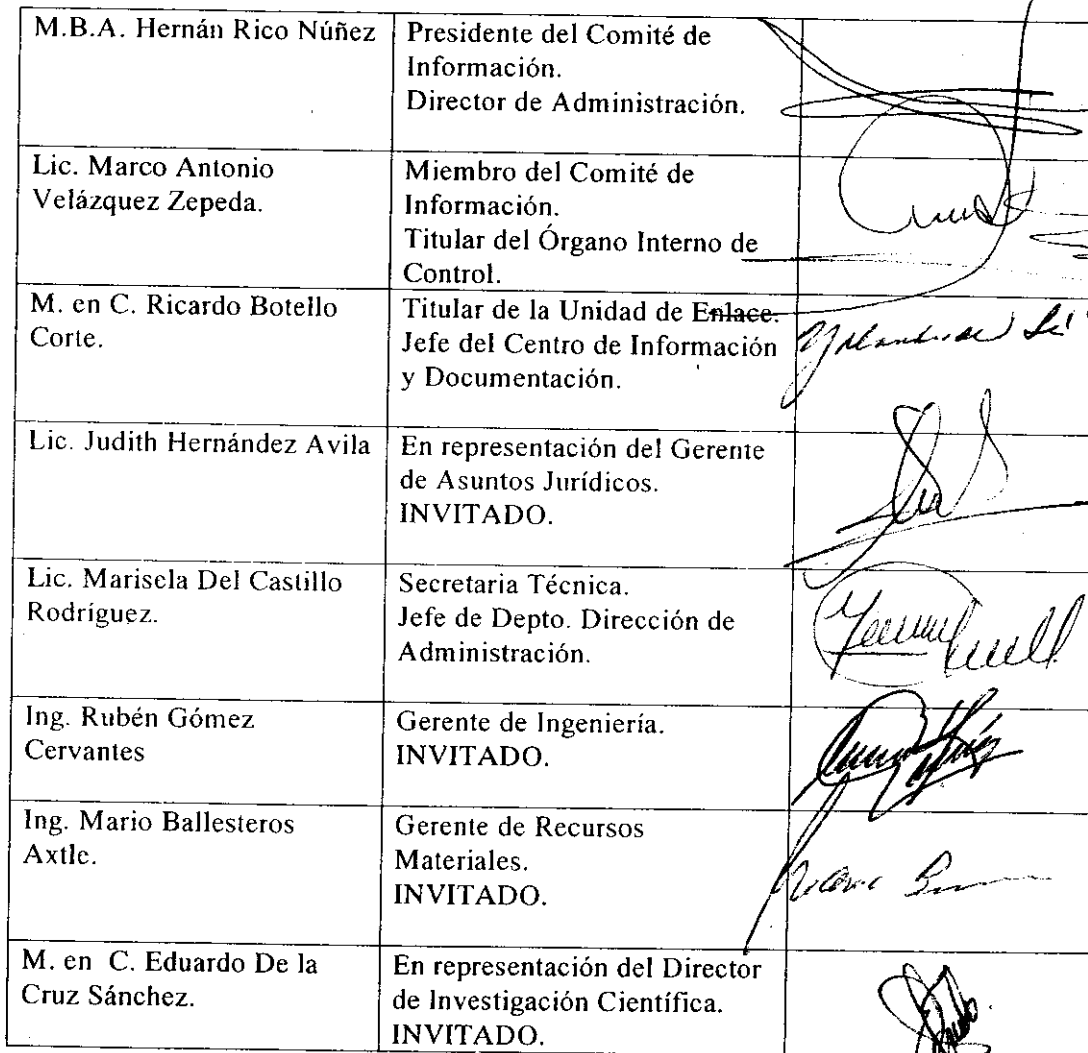 M.B.A. Hernán Rico Núñez
Presidente del Comité de
Información.
Director de Administración.
Lic. Marco Antonio
Velázquez Zepeda.
Miembro del Comité de
Información.
Titular del Órgano Interno de
Control.
M. en C. Ricardo Botello
Corte.
Titular de la Unidad de Enlace.
Jefe del Centro de Información
y Documentación.
Lic. Judith Hernández Avila
En representación del Gerente
de Asuntos Jurídicos.
INVITADO.
Lic. Marisela Del Castillo
Rodríguez.
Secretaria Técnica.
Jefe de Depto. Dirección de
Administración.
Ing. Rubén Gómez
Cervantes
Gerente de Ingeniería.
INVITADO.
Ing. Mario Ballesteros
Axtle.
Gerente de Recursos
Materiales.
INVITADO.
M. en C. Eduardo De la
Cruz Sánchez.
En representación del Director
de Investigación Científica.
INVITADO.